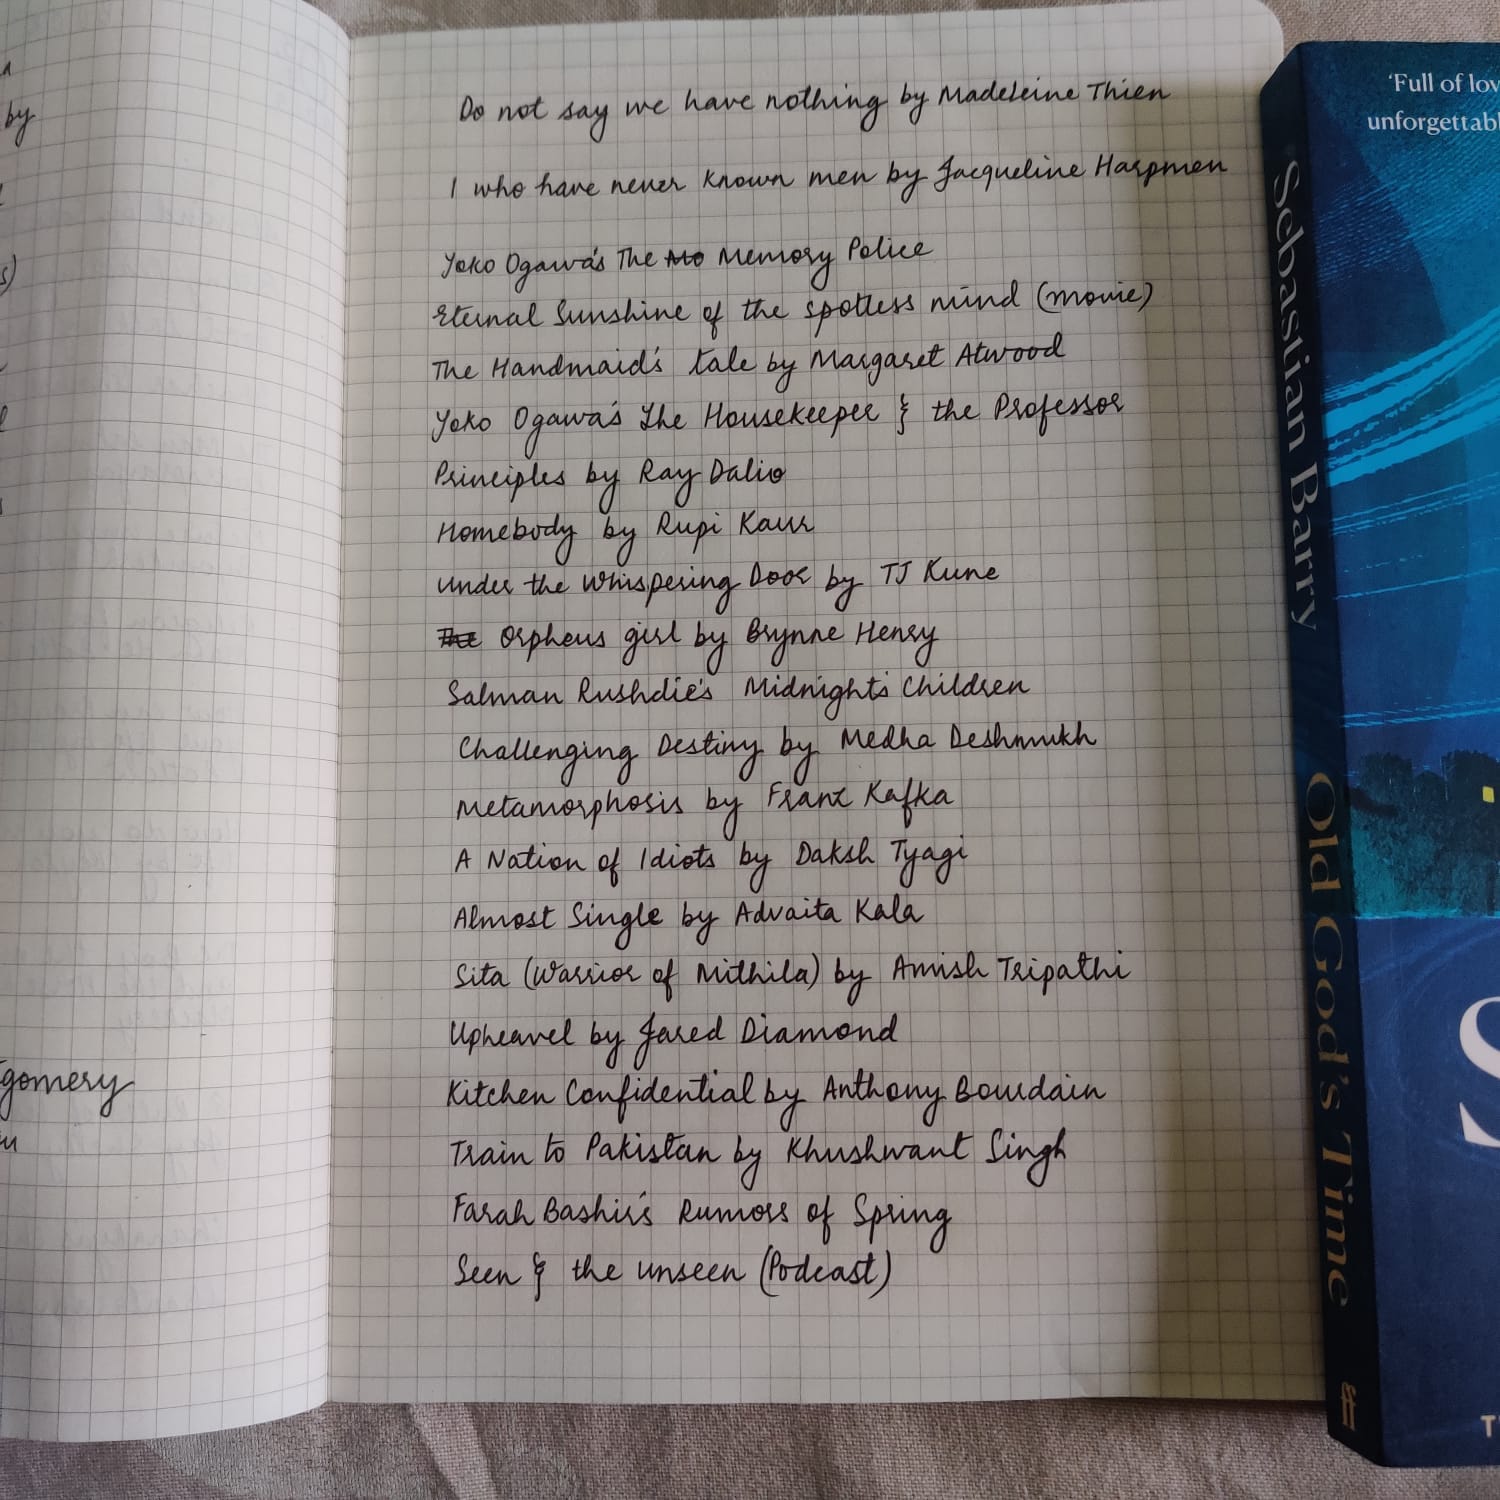 a
by
s)
gomery
Do not say we have nothing by Madeleine Thien
I who have never known men by Jacqueline Harpmen
Yoko Ogawa's The Mo Memory Police
Eternal Sunshine of the spotless mind (movie)
The Handmaid's tale by Margaret Atwood
Yoko Ogawa's The Housekeeper & the Professor
Principles by Ray Dalio
Homebody by Rupi Kaur
Under the Whispering Door by TJ Kune
The Orpheus girl by Brynne Henry
Salman Rushdie's Midnight's Children
Challenging Destiny by Medha Deshmukh
Metamorphosis by Franz Kafka
A Nation of Idiots by Daksh Tyagi
Almost Single by Advaita Kala
Sita (Warrior of Mithila) by Amish Tripathi
Upheavel by Jared Diamond
Kitchen Confidential by Anthony Bourdain
Train to Pakistan by Khushwant Singh
Farah Bashir's Rumors of Spring
Seen & the unseen (Podcast)
Sebastian Barry Old God's Time ff
'Full of lov
unforgettabl
S
T